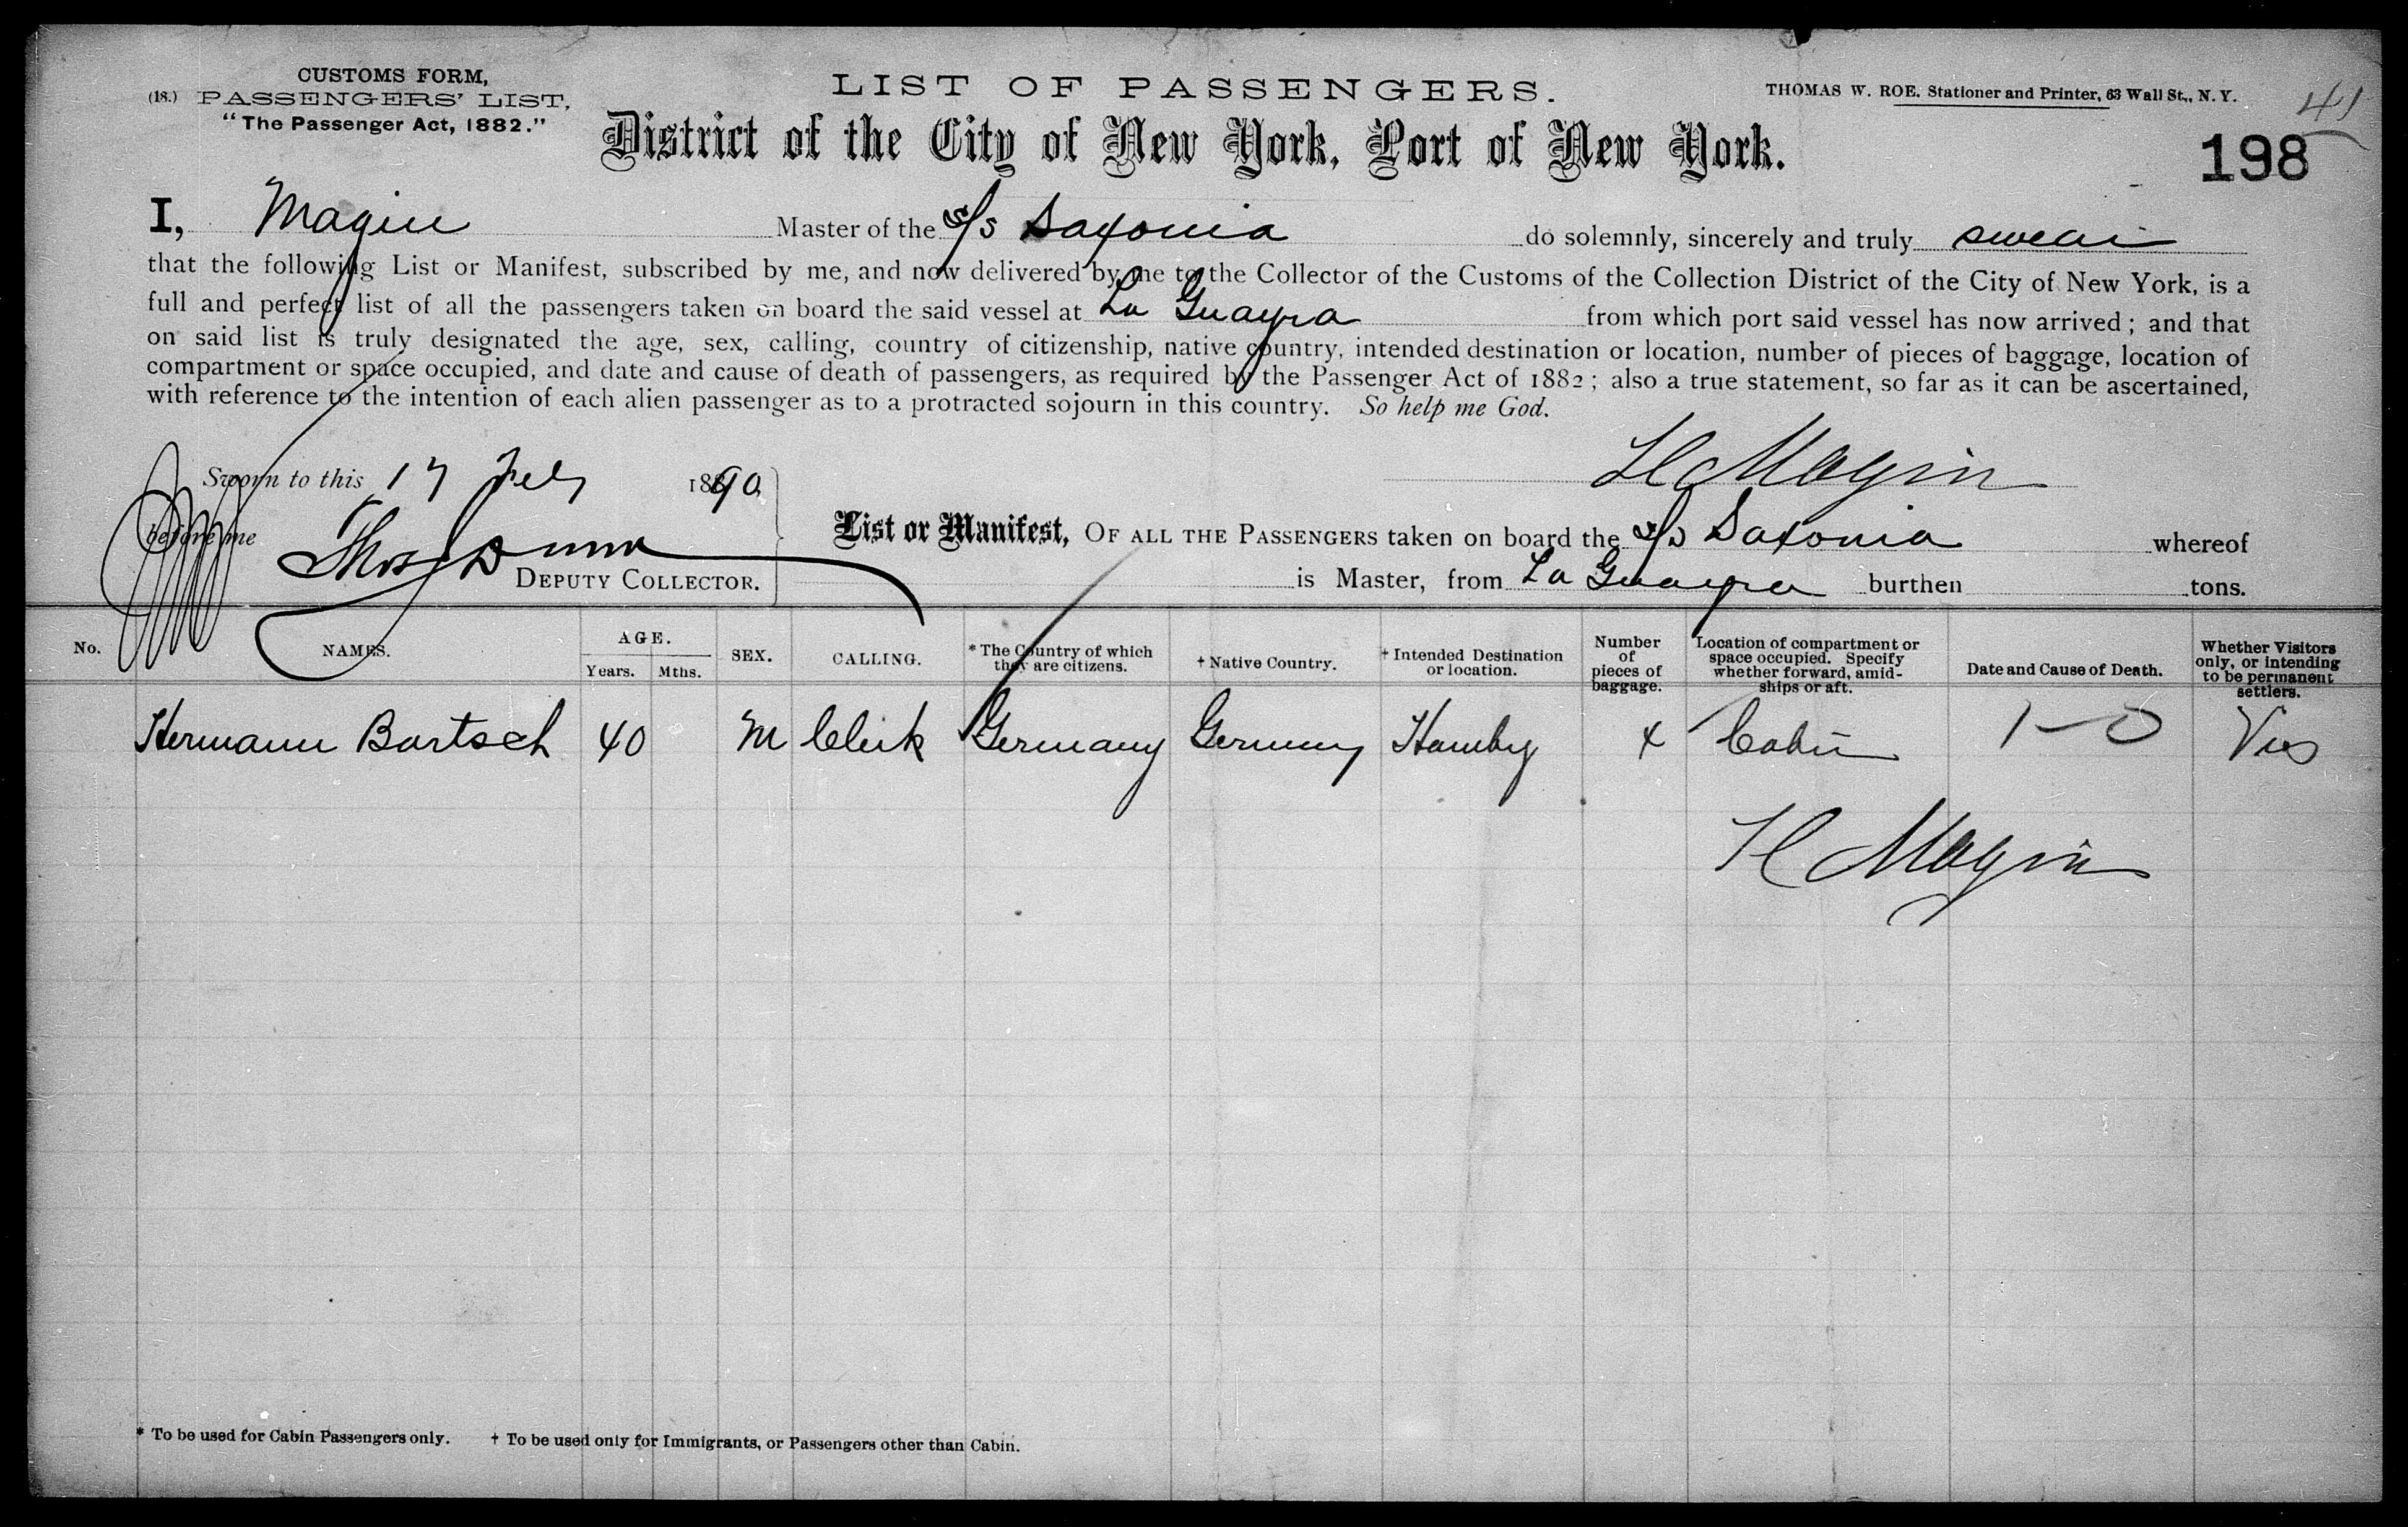 CUSTOMS FORM,
(18.) PASSENGERS' LIST,
"The Passenger Act, 1882."
LIST OF PASSENGERS.
THOMAS W. ROE. Stationer and Printer, 63 Wall St., N. Y.
41
District of the City of New York, Port of New York.
198
I, Magin Master of the S/S Saxonia do solemnly, sincerely and truly swear
that the following List or Manifest, subscribed by me, and now delivered by me to the Collector of the Customs of the Collection District of the City of New York, is a
full and perfect list of all the passengers taken on board the said vessel at La Guayra from which port said vessel has now arrived; and that
on said list is truly designated the age, sex, calling, country of citizenship, native country, intended destination or location, number of pieces of baggage, location of
compartment or space occupied, and date and cause of death of passengers, as required by the Passenger Act of 1882; also a true statement, so far as it can be ascertained,
with reference to the intention of each alien passenger as to a protracted sojourn in this country. So help me God.
H Magin
Sworn to this 17 Feby 1890
before me Thos Dunn
DEPUTY COLLECTOR.
List or Manifest, OF ALL THE PASSENGERS taken on board the S/S Saxonia whereof
is Master, from La Guayra burthen tons.
No. NAMES. AGE. Years. Mths. SEX. CALLING. * The Country of which they are citizens. † Native Country. † Intended Destination or location. Number of pieces of baggage. Location of compartment or space occupied. Specify whether forward, amid-ships or aft. Date and Cause of Death. Whether Visitors only, or intending to be permanent settlers.
Hermann Bartsch 40 M Clerk Germany Germany Hambg 4 Cabin 1-0 Vis
H Magin
* To be used for Cabin Passengers only. † To be used only for Immigrants, or Passengers other than Cabin.